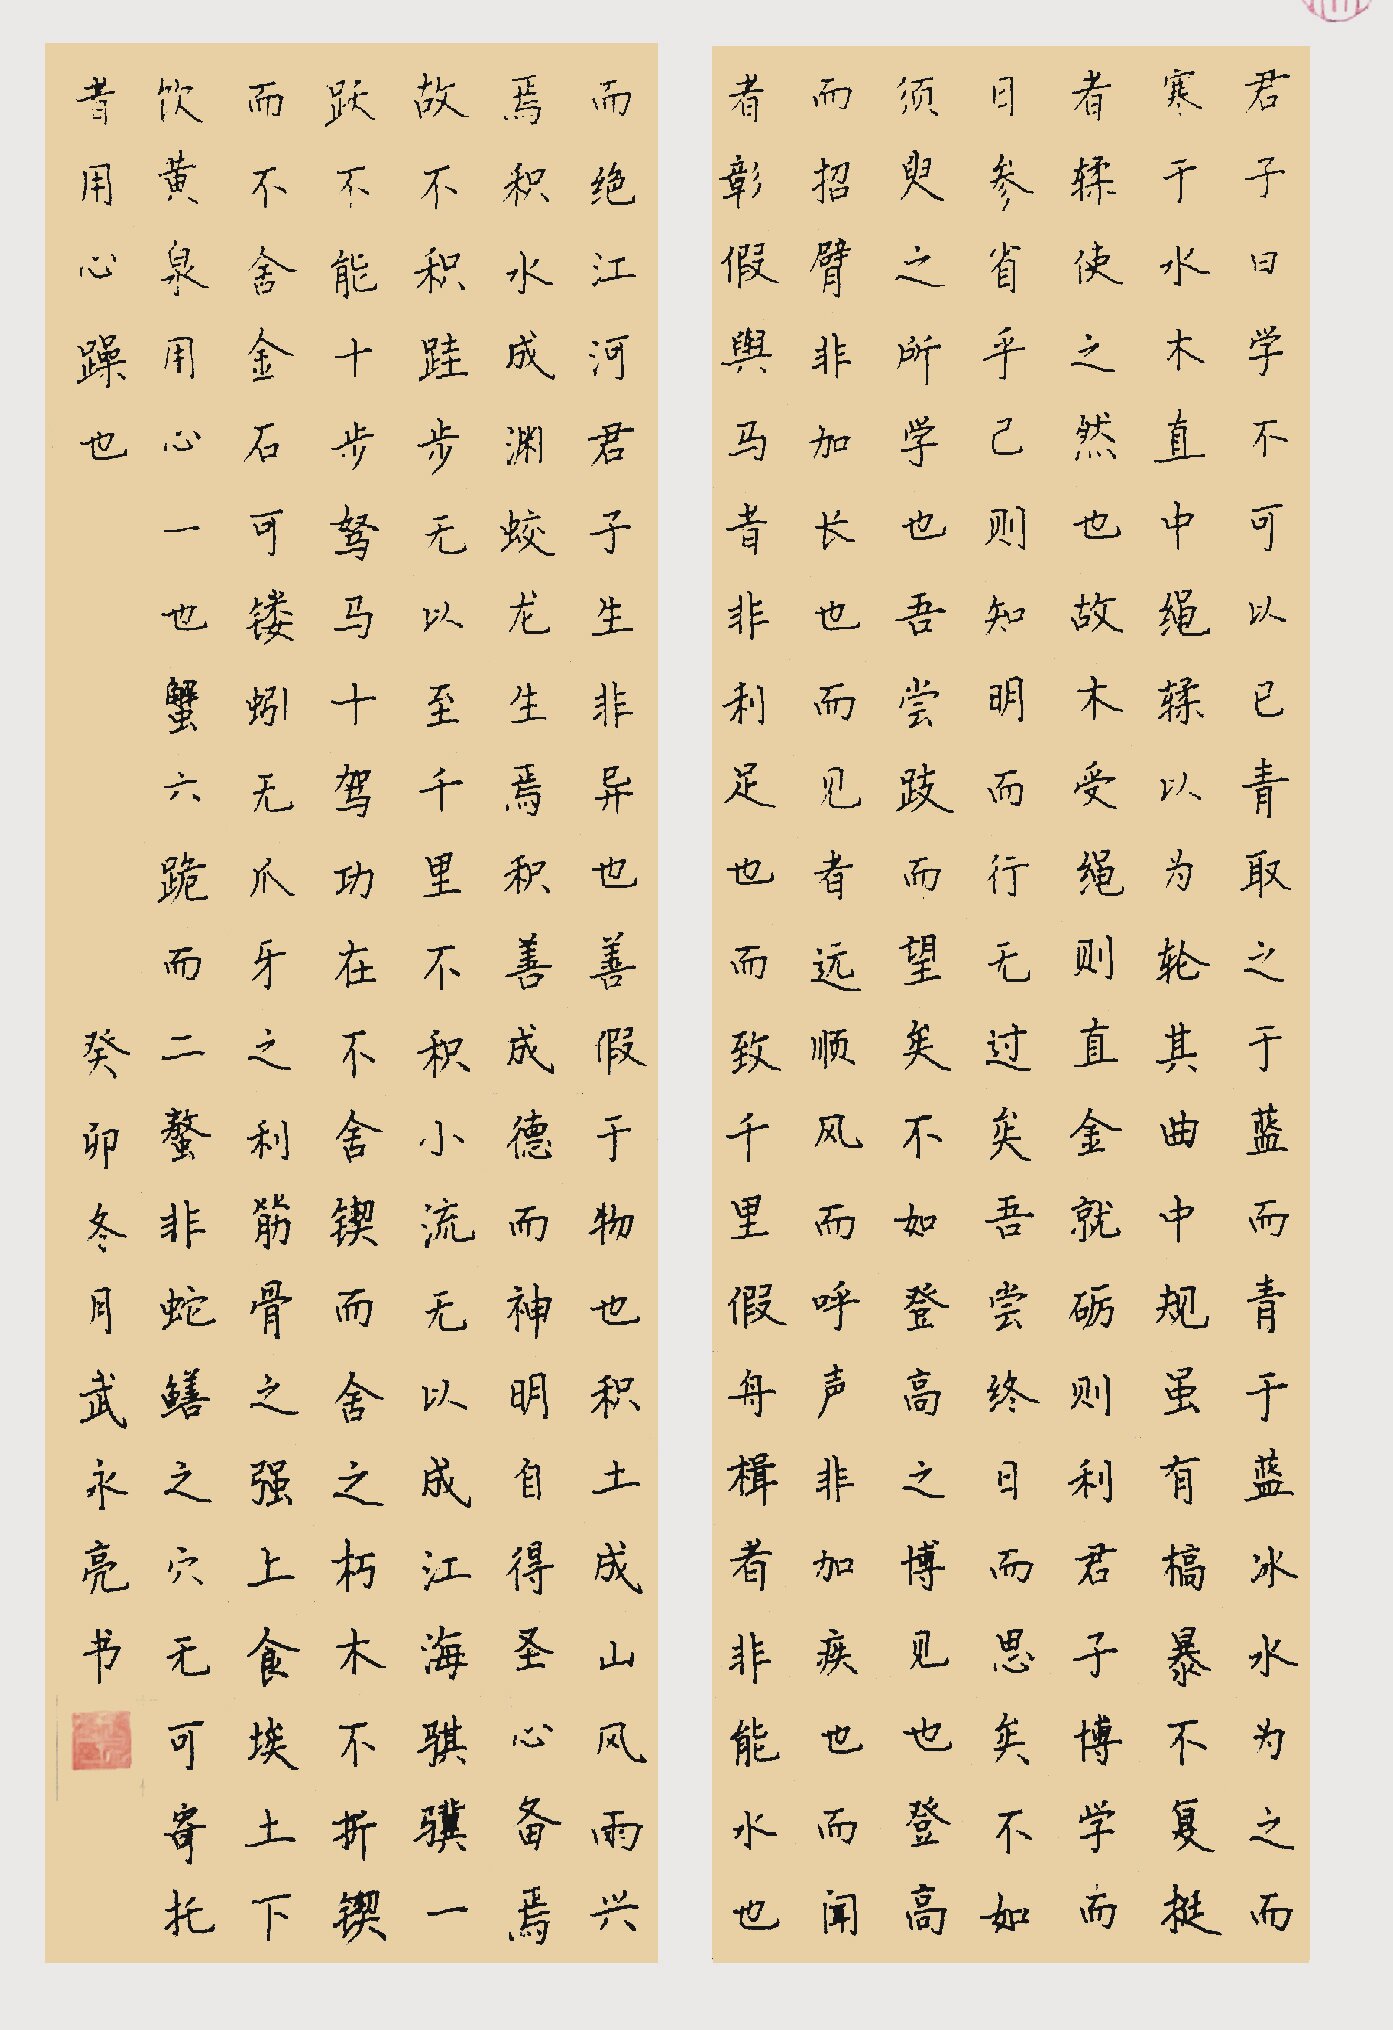 君子曰学不可以已青取之于蓝而青于蓝冰水为之而
寒于水木直中绳𫐓以为轮其曲中规虽有槁暴不复挺
者𫐓使之然也故木受绳则直金就砺则利君子博学而
日参省乎己则知明而行无过矣吾尝终日而思矣不如
须臾之所学也吾尝跂而望矣不如登高之博见也登高
而招臂非加长也而见者远顺风而呼声非加疾也而闻
者彰假舆马者非利足也而致千里假舟楫者非能水也
而绝江河君子生非异也善假于物也积土成山风雨兴
焉积水成渊蛟龙生焉积善成德而神明自得圣心备焉
故不积跬步无以至千里不积小流无以成江海骐骥一
跃不能十步驽马十驾功在不舍锲而舍之朽木不折锲
而不舍金石可镂蚓无爪牙之利筋骨之强上食埃土下
饮黄泉用心一也蟹六跪而二螯非蛇鳝之穴无可寄托
者用心躁也 癸卯冬月武永亮书